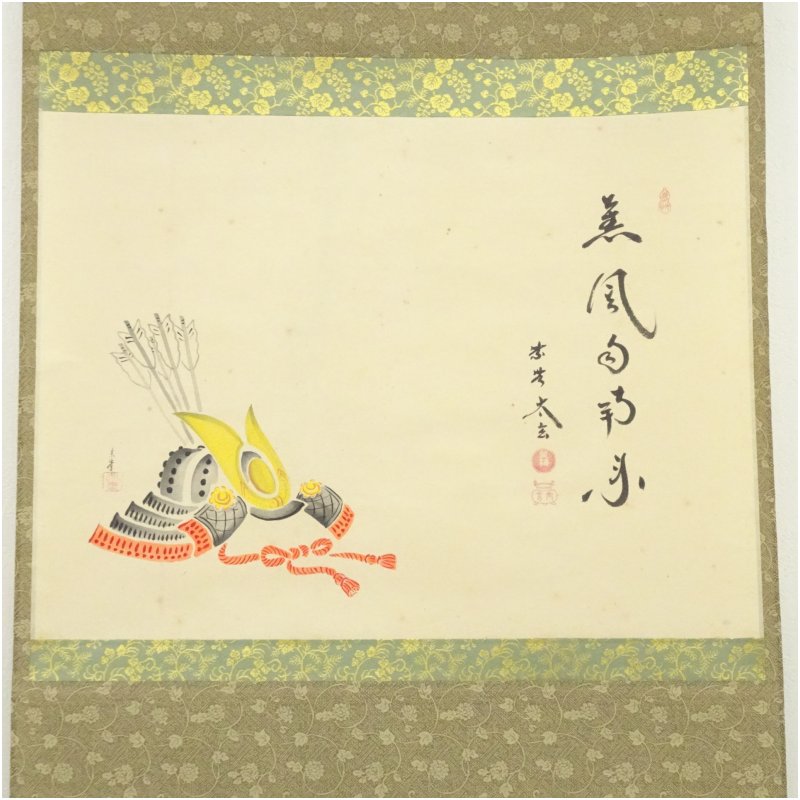 薫風自南来
紫野太玄